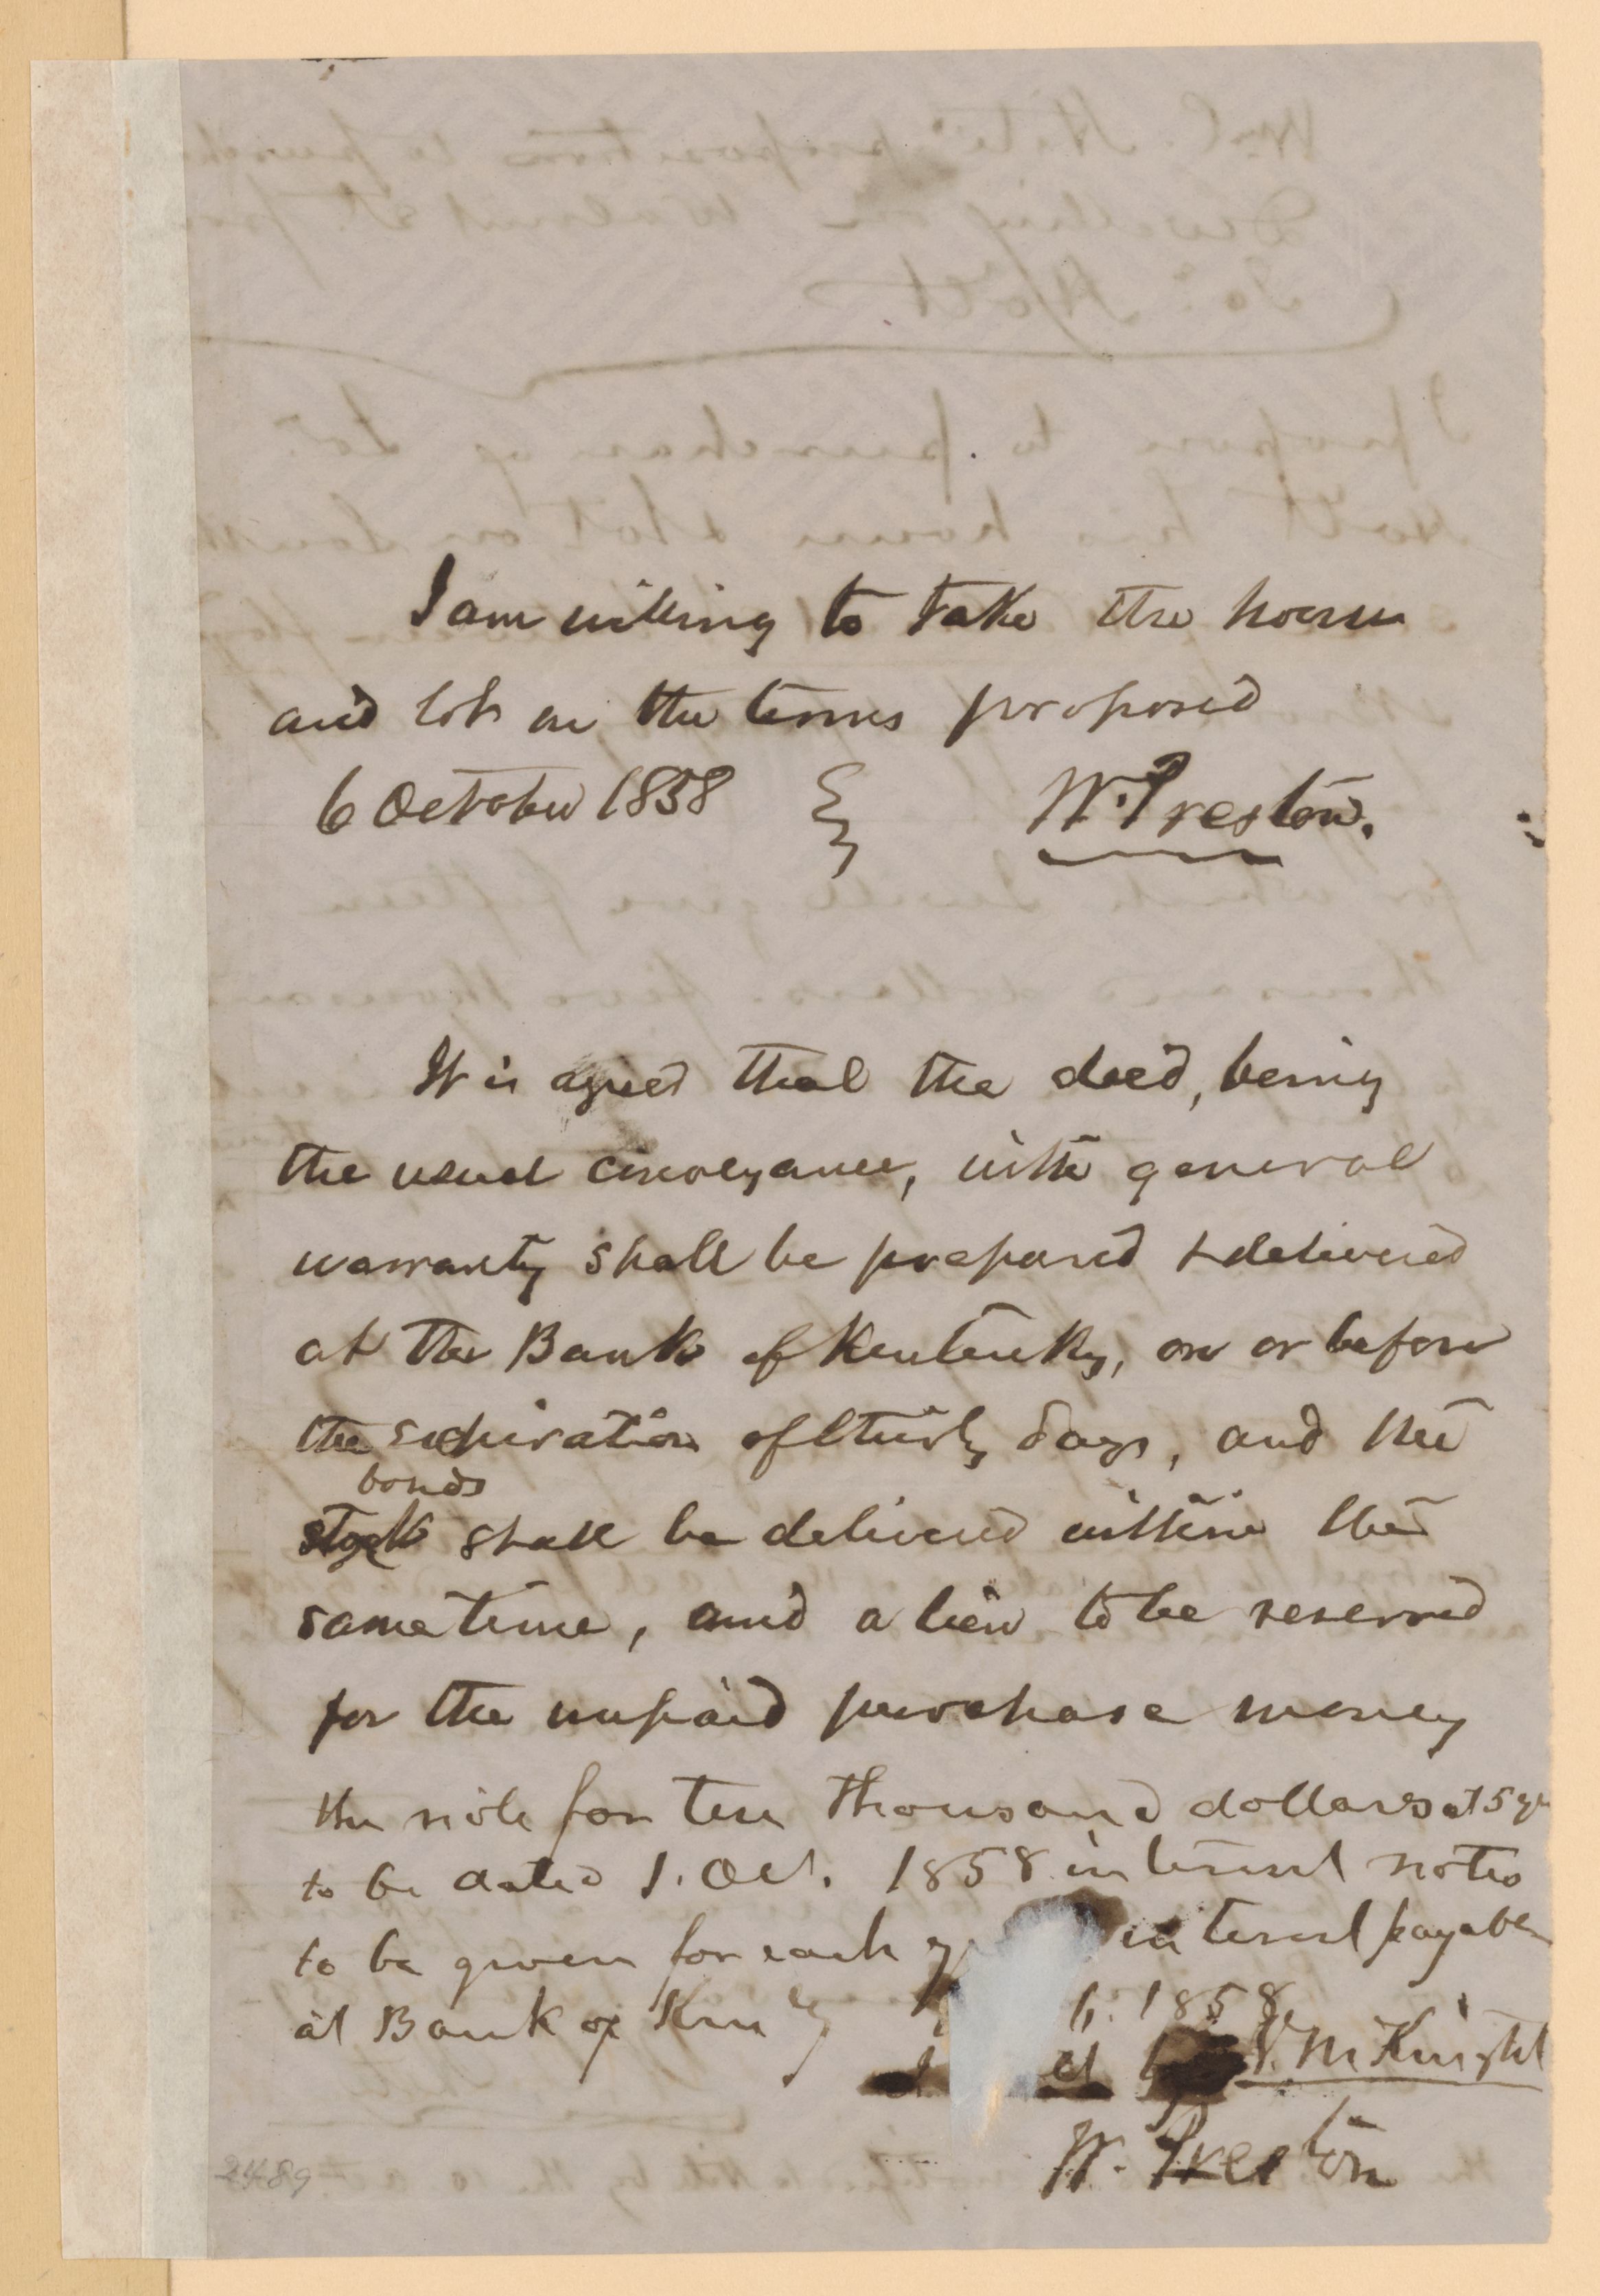 I am willing to take the house
and lot on the terms proposed
6 October 1858 W. Preston.
It is agreed that the deed, being
the usual conveyance, with general
warranty shall be prepared & delivered
at the Bank of Kentucky, on or before
the expiration of thirty days, and the
bonds
stock shall be delivered within the
same time, and a lien to be reserved
for the unpaid purchase money
the note for ten thousand dollars at 5 yr
to be dated 1. Oct. 1858 interest notes
to be given for each interest payable
at Bank of Ken ky 6. 1858
V. McKnight
W. Preston
2489